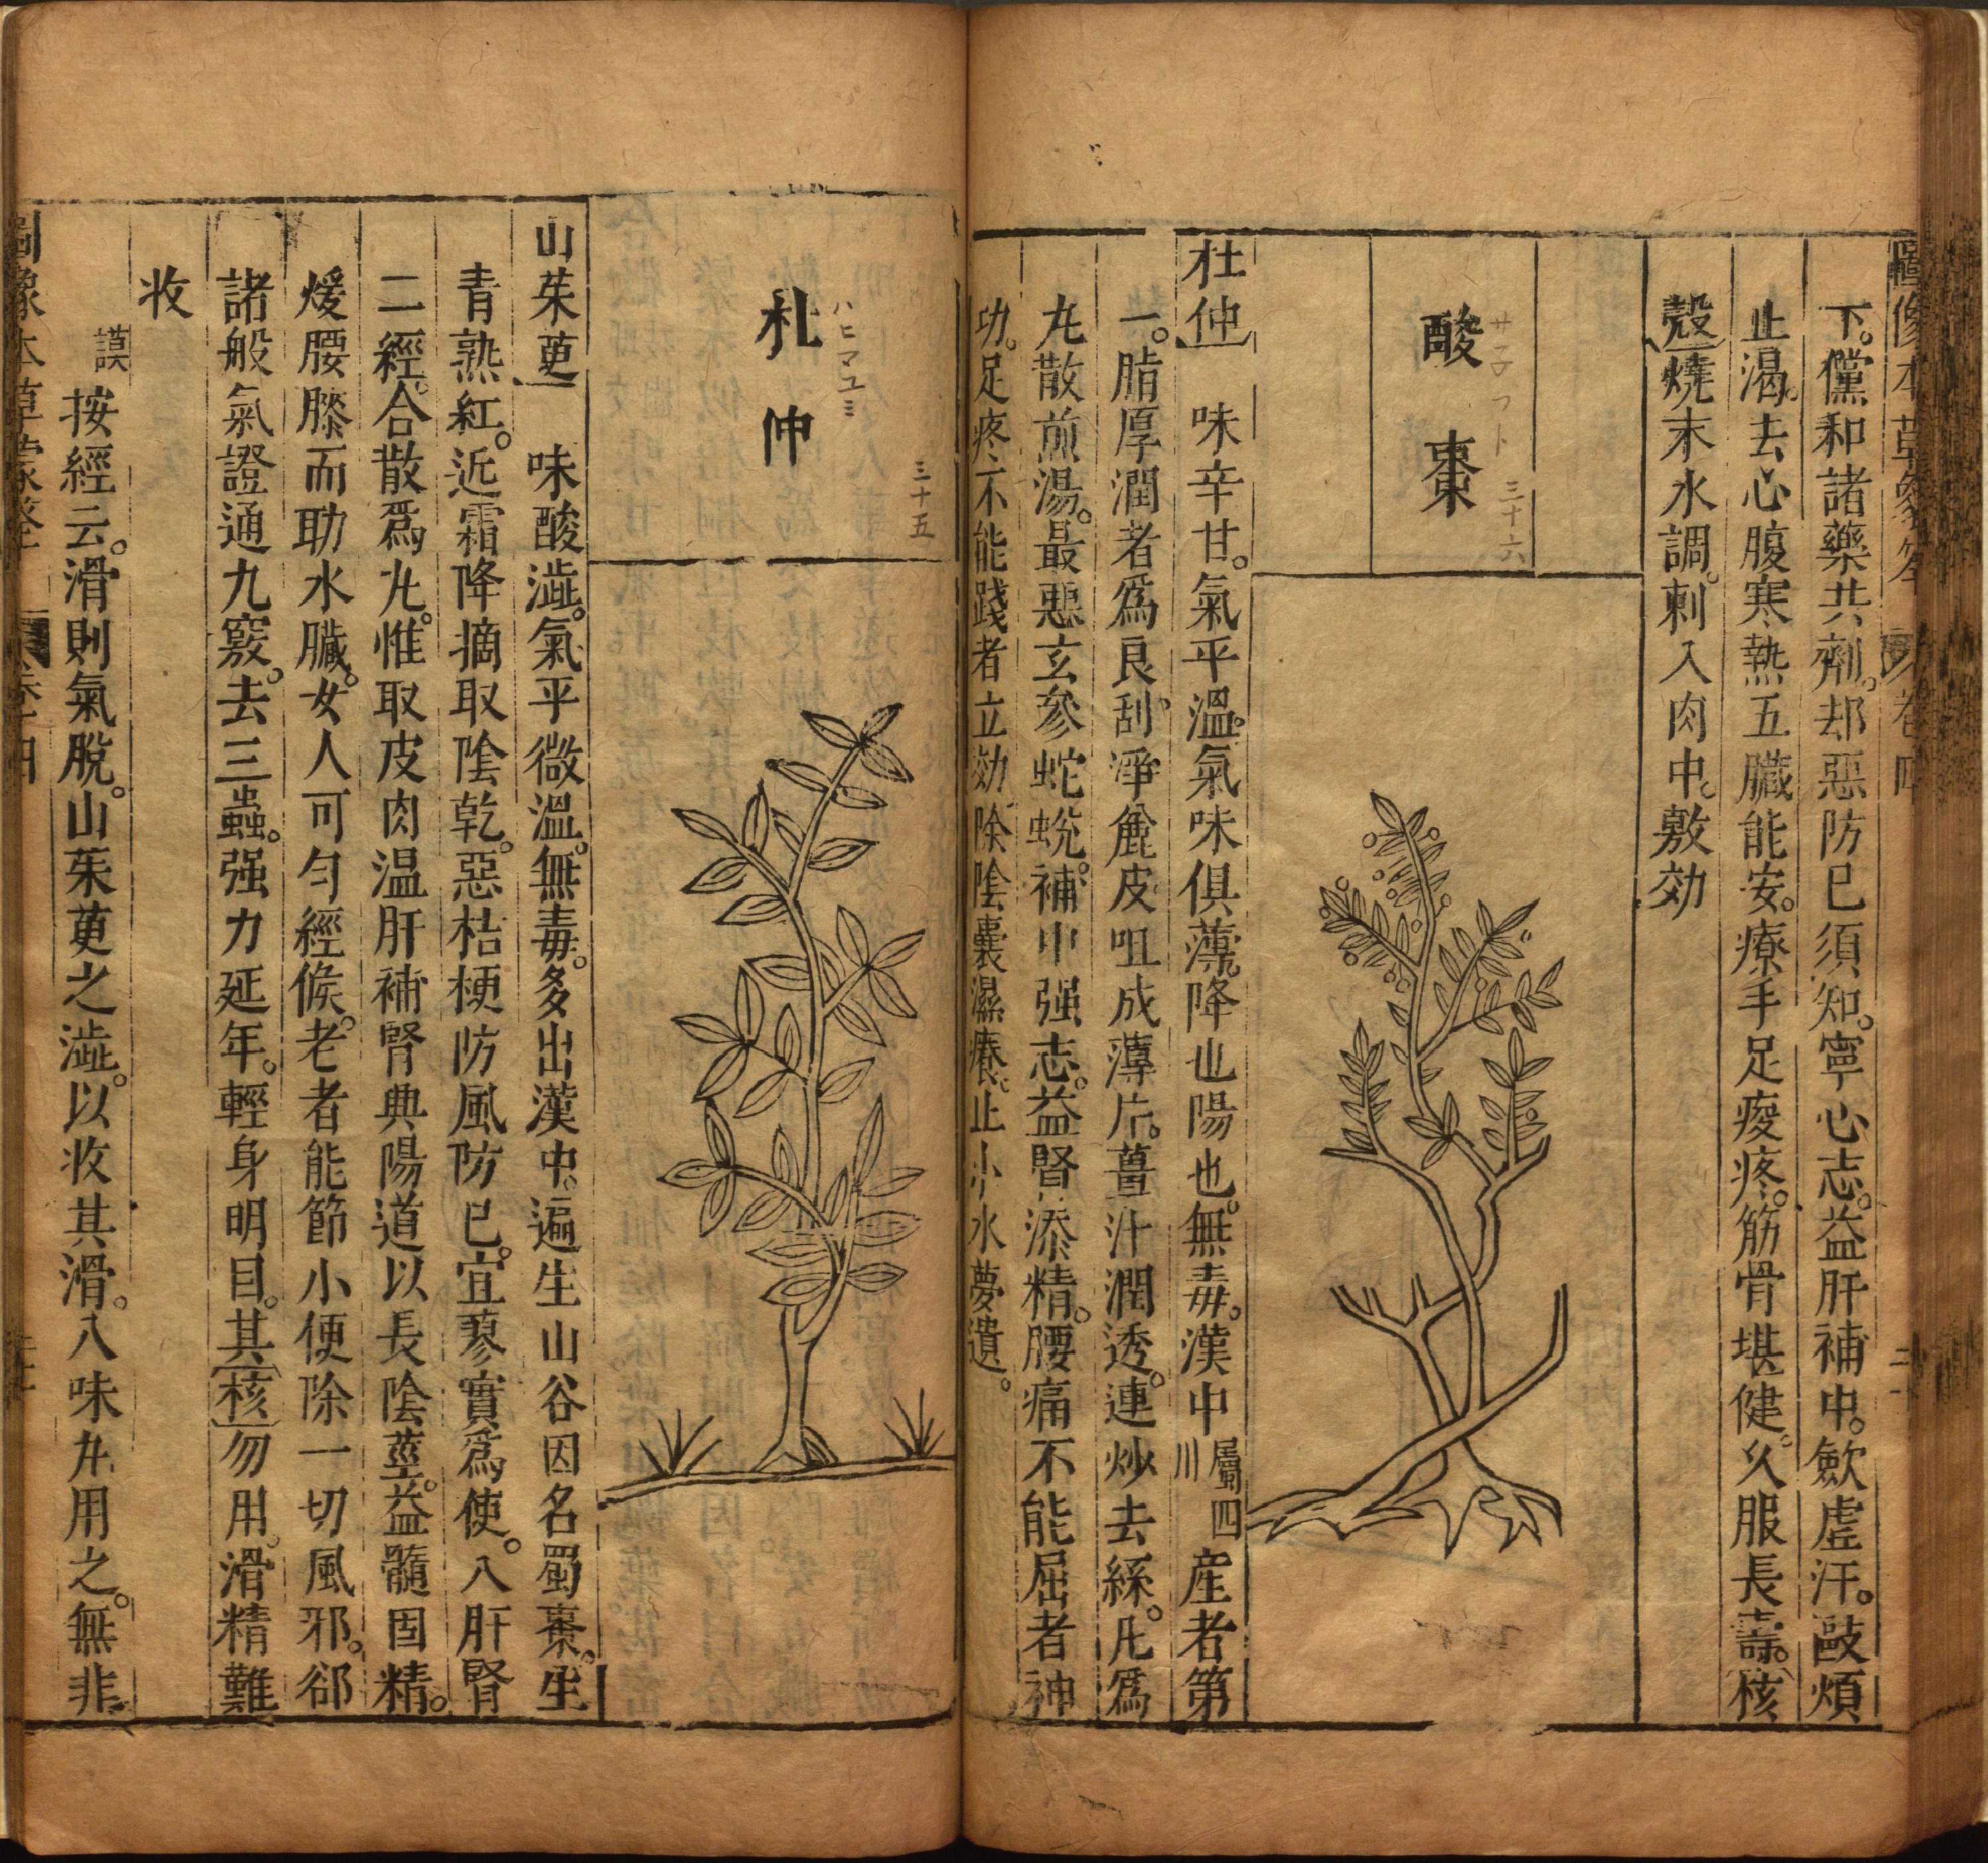 圖像本草蒙筌 卷四
下。儻和諸藥共劑。却惡防巳須知。寧心志。益肝補中。歛虛汗。敺煩
止渴。去心腹寒熱五臟能安。療手足痠疼。筋骨堪健。久服長壽。核
殼燒末水調。刺入肉中。敷効
酸棗
三十六
杜仲 味辛甘。氣平溫。氣味俱薄。降也陽也。無毒。漢中屬四川產者第
一。脂厚潤者爲良。刮淨麄皮咀成薄片。薑汁潤透。連炒去絲。凡爲
丸散煎湯。最惡玄參蛇蛻。補中强志。益腎添精。腰痛不能屈者神
功。足疼不能踐者立効。除陰囊濕癢。止小水夢遺。
三十五
ハヒマユミ
札仲
山茱萸 味酸澁。氣平微溫。無毒。多出漢中。遍生山谷因名蜀棗。生
青熟紅。近霜降摘取陰乾。惡桔梗防風防巳。宜蓼實爲使。入肝腎
二經。合散爲丸。惟取皮肉温肝補腎典陽道以長陰莖。益髓固精。
煖腰膝而助水臟。女人可匀經候。老者能節小便除一切風邪。卻
諸般氣證通九竅。去三蟲。强力延年。輕身明目。其核勿用。滑精難
收
謨按經云。滑則氣脫。山茱萸之澁。以收其滑。八味丸用之。無非
圖像本草蒙筌 卷四